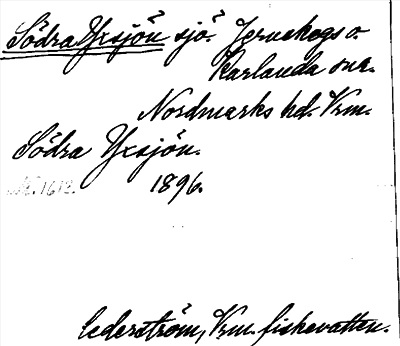 Södra Yxsjön sjö. Jernskogs o.
Karlanda snr.
Nordmarks hd. Vrm.
Södra Yxsjön.
1896.
Cederström, Vrm. fiskevatten.